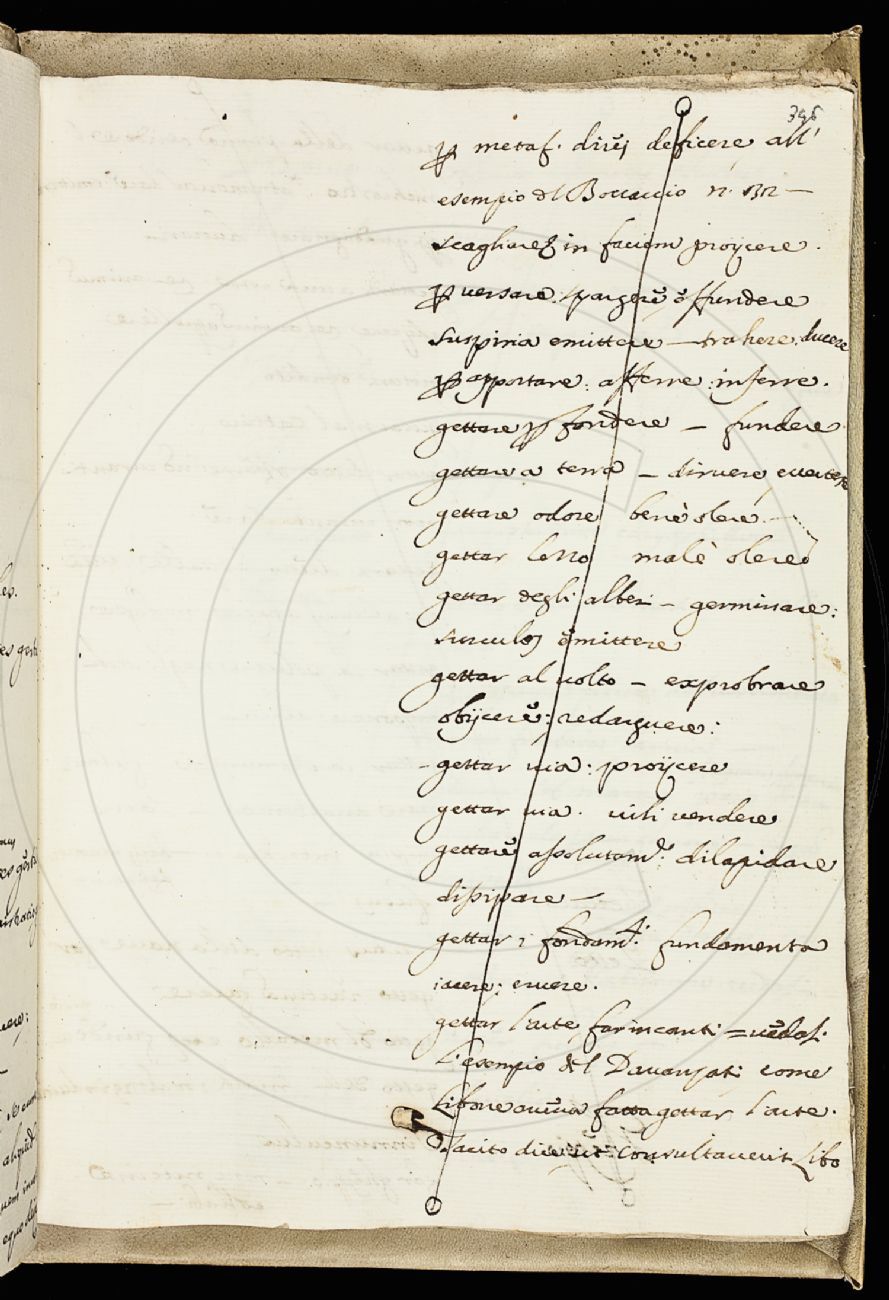 346
p metaf. diresi deficere all'
esempio dl Boccaccio n. 1312 —
scagliare in faciem proijcere.
p versare. spargere effundere
suspiria emittere — trahere. ducere
p apportare: afferre: inferre.
gettare p fondere — fundere
gettare a terra — diruere evertere
gettare odore benè olere —
gettar lezzo malè olere
gettar degli alberi — germinare:
surculos emittere
gettar al uolto — exprobrare
obijcere: redarguere:
- gettar uia: proijcere
gettar uia. uili uendere
gettare assolutamte: dilapidare
dissipare —
gettar i fondamti: fundamenta
iacere: eruere.
gettar l'arte far incanti = uedasi
l'esempio del Dauanzati come
Libone aueua fatto gettar l'arte.
Tacito dice ut consultauerit Libo